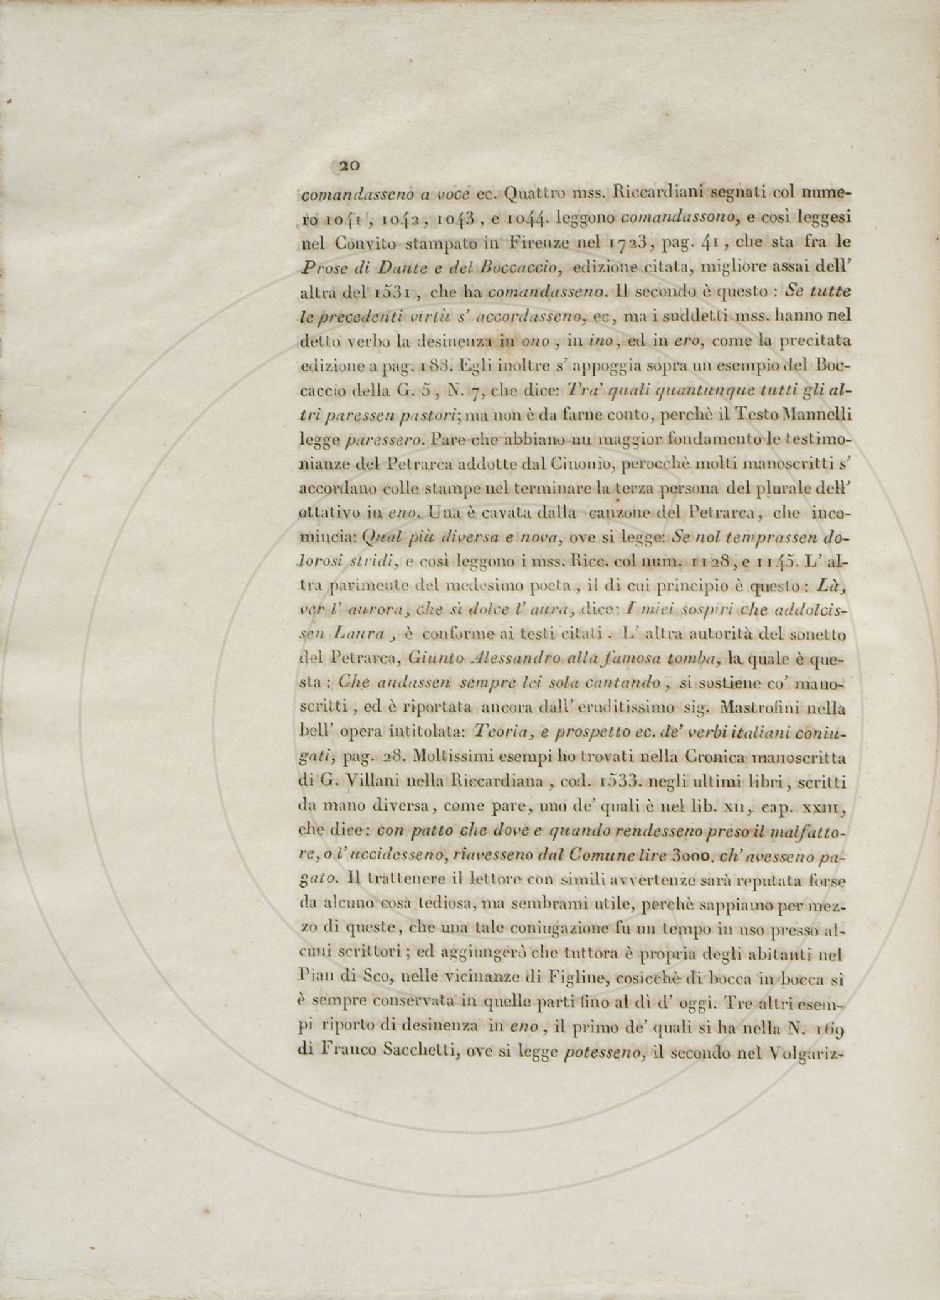 20
comandasseno a voce ec. Quattro mss. Riccardiani segnati col nume-
ro 1041, 1042, 1043, e 1044. leggono comandassono, e così leggesi
nel Convito stampato in Firenze nel 1723, pag. 41, che sta fra le
Prose di Dante e del Boccaccio, edizione citata, migliore assai dell'
altra del 1531, che ha comandasseno. Il secondo è questo: Se tutte
le precedenti virtù s' accordasseno, ec, ma i suddetti mss. hanno nel
detto verbo la desinenza in ono, in ino, ed in ero, come la precitata
edizione a pag. 188. Egli inoltre s' appoggia sopra un esempio del Boc-
caccio della G. 5, N. 7, che dice: Tra' quali quantunque tutti gli al-
tri paressen pastori; ma non è da farne conto, perchè il Testo Mannelli
legge paressero. Pare che abbiano un maggior fondamento le testimo-
nianze del Petrarca addotte dal Cinonio, perocchè molti manoscritti s'
accordano colle stampe nel terminare la terza persona del plurale dell'
ottativo in eno. Una è cavata dalla canzone del Petrarca, che inco-
mincia: Qual più diversa e nova, ove si legge: Se nol temprassen do-
lorosi stridi, e così leggono i mss. Ricc. col num. 1128, e 1145. L' al-
tra parimente del medesimo poeta, il di cui principio è questo: Là,
ver l' aurora, che sì dolce l' aura, dice: I miei sospiri che addolcis-
sen Laura, è conforme ai testi citati. L' altra autorità del sonetto
del Petrarca, Giunto Alessandro alla famosa tomba, la quale è que-
sta: Che andassen sempre lei sola cantando, si sostiene co' mano-
scritti, ed è riportata ancora dall' eruditissimo sig. Mastrofini nella
bell' opera intitolata: Teoria, e prospetto ec. de' verbi italiani coniu-
gati, pag. 28. Moltissimi esempi ho trovati nella Cronica manoscritta
di G. Villani nella Riccardiana, cod. 1533. negli ultimi libri, scritti
da mano diversa, come pare, uno de' quali è nel lib. XII, cap. XXIII,
che dice: con patto che dove e quando rendesseno preso il malfatto-
re, o l' uccidesseno, riavesseno dal Comune lire 3000. ch' avesseno pa-
gato. Il trattenere il lettore con simili avvertenze sarà reputata forse
da alcuno cosa tediosa, ma sembrami utile, perchè sappiamo per mez-
zo di queste, che una tale coniugazione fu un tempo in uso presso al-
cuni scrittori; ed aggiungerò che tuttora è propria degli abitanti nel
Pian di Sco, nelle vicinanze di Figline, cosicchè di bocca in bocca si
è sempre conservata in quelle parti fino al dì d' oggi. Tre altri esem-
pi riporto di desinenza in eno, il primo de' quali si ha nella N. 169
di Franco Sacchetti, ove si legge potesseno, il secondo nel Volgariz-